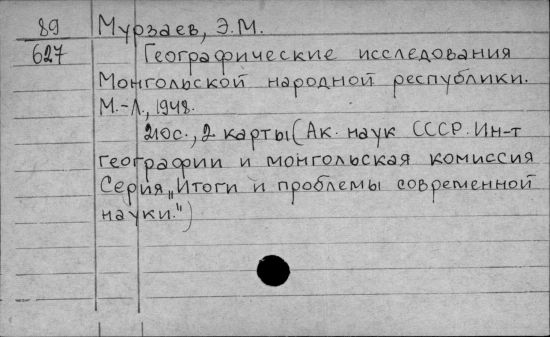 89 Мурзаев, Э.М.
627 Географические исследования
Монгольской народной республики.
М.-Л., 1948.
210с., 2 карты (Ак. наук СССР. Ин-т
географии и монгольская комиссия
Серия „Итоги и проблемы современной
науки.")